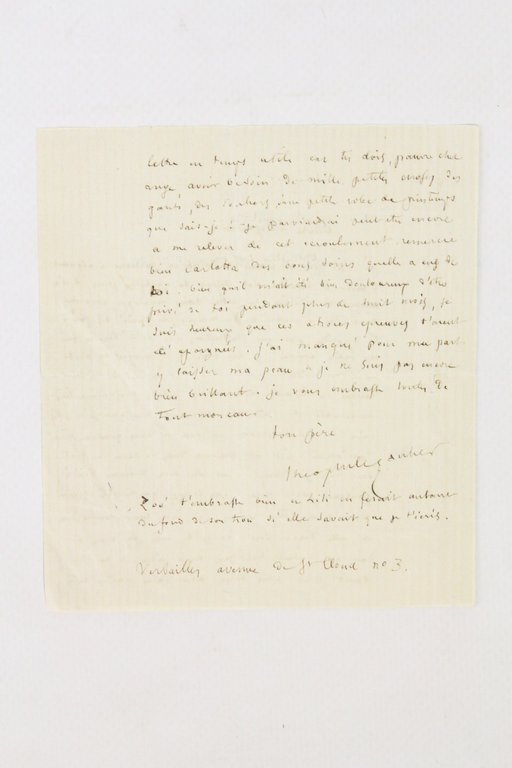 lettre en temps utile car tu dois, pauvre cher
ange, avoir besoin de mille petites choses des
gants, des souliers une petite robe de printemps
que sais-je - je parviendrai peut etre encore
a me relever de cet ecroulement remercie
bien carlotta des bons soins quelle a eus de
toi. bien qu'il m'ait été bien douloureux d'être
privé de toi pendant plus de huit mois, je
suis heureux que ces atroces epreuves t'aient
été epargnées. j'ai manqué pour ma part
y laisser ma peau et je ne suis pas encore
bien brillant. je vous embrasse toutes de
tout mon cœur.
ton père
theophile gautier
Zoé t'embrasse bien et Lili en ferait autant
du fond de son trou si elle savait que je t'écris.
Versailles avenue de St Cloud no 3.